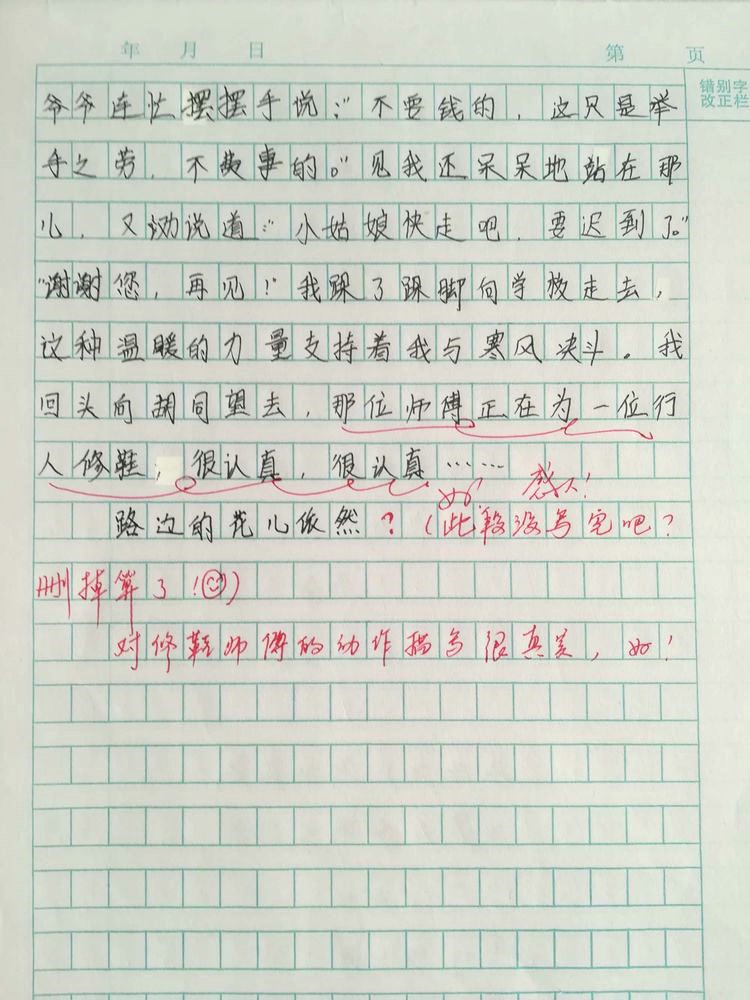 年 月 日 第 页
错别字
改正栏
爷爷连忙摆摆手说:“不要钱的,这只是举
手之劳,不费事的。”见我还呆呆地站在那
儿,又说道:“小姑娘快走吧,要迟到了。”
“谢谢您,再见!”我跺了跺脚向学校走去,
这种温暖的力量支持着我与寒风决斗。我
回头向胡同望去,那位师傅正在为一位行
人修鞋,很认真,很认真……
好 感人!
路边的花儿依然?(此段没写完吧?
删掉算了!)
对修鞋师傅的动作描写很真美,好!